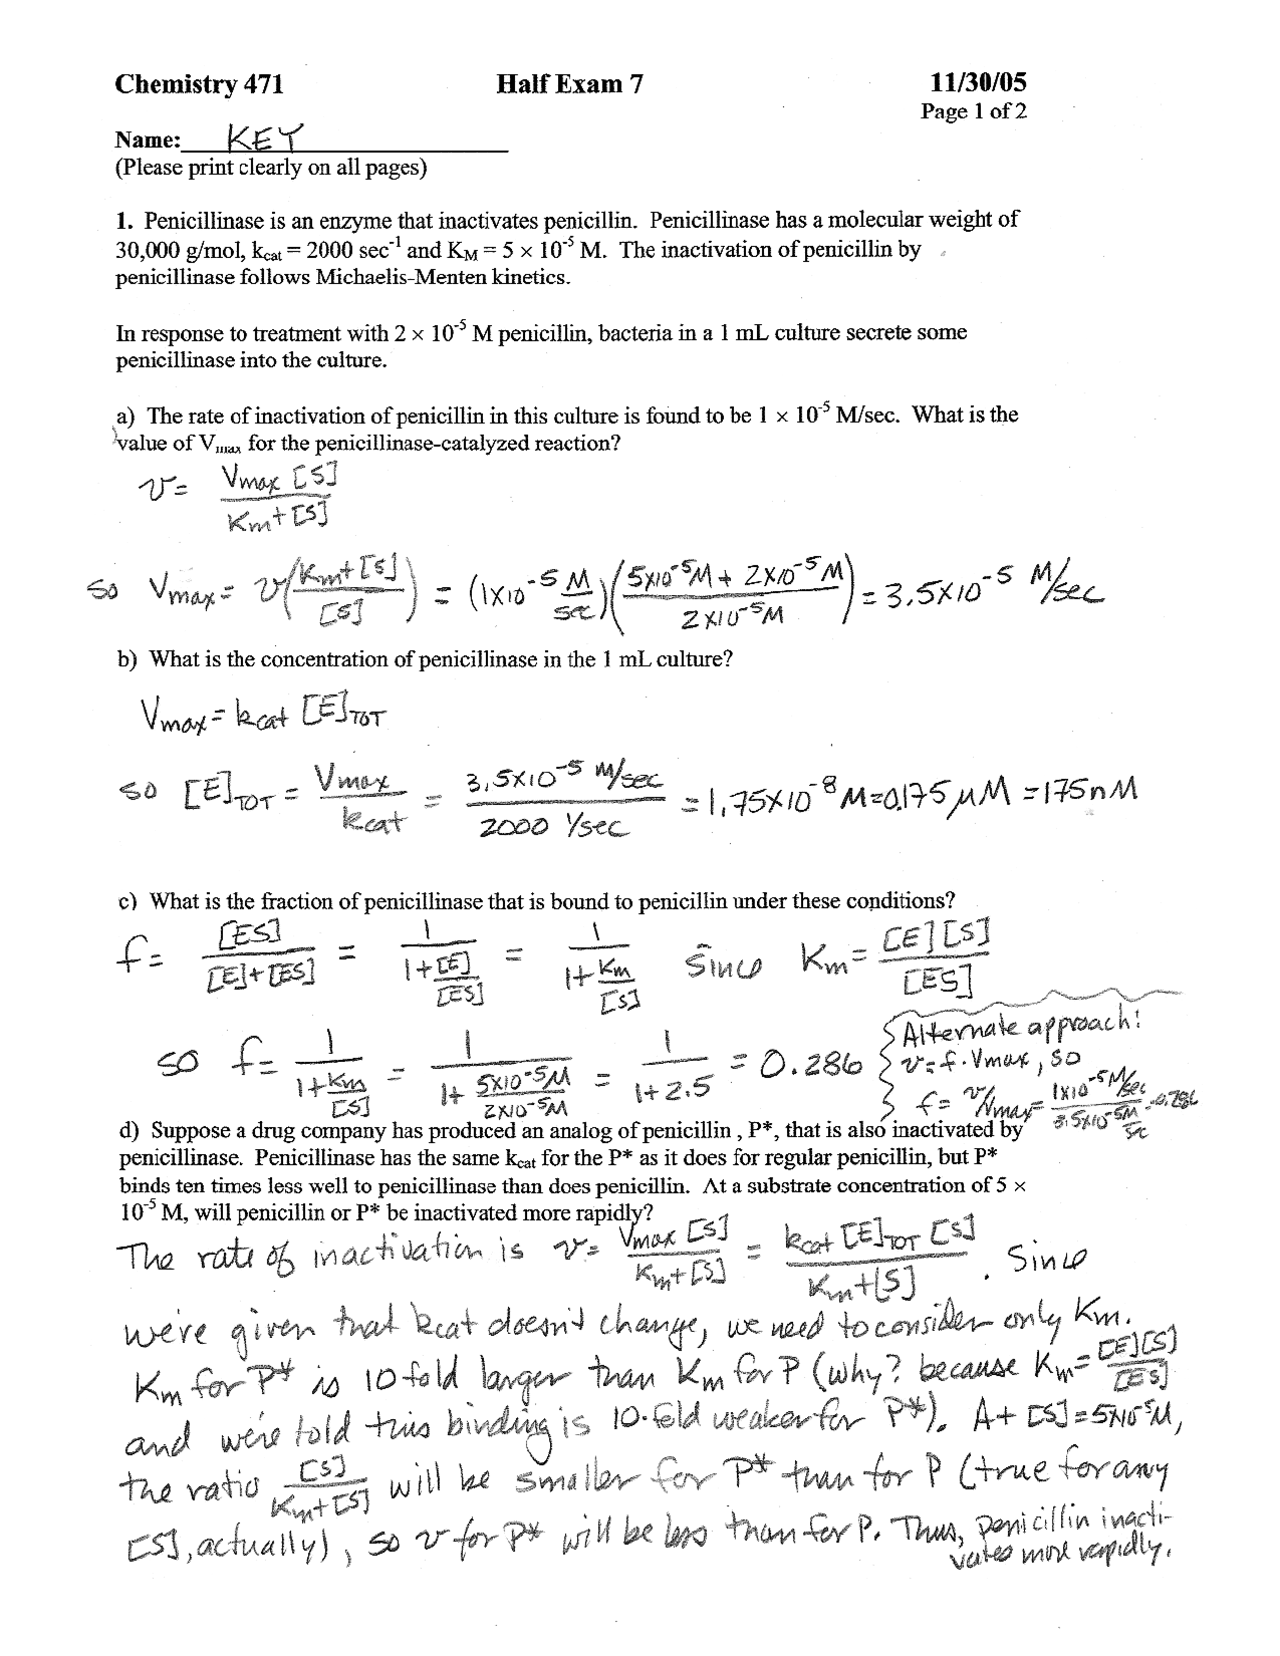 Chemistry 471 Half Exam 7 11/30/05
Page 1 of 2
Name: KEY
(Please print clearly on all pages)
1. Penicillinase is an enzyme that inactivates penicillin. Penicillinase has a molecular weight of
30,000 g/mol, kcat = 2000 sec⁻¹ and KM = 5 × 10⁻⁵ M. The inactivation of penicillin by
penicillinase follows Michaelis-Menten kinetics.
In response to treatment with 2 × 10⁻⁵ M penicillin, bacteria in a 1 mL culture secrete some
penicillinase into the culture.
a) The rate of inactivation of penicillin in this culture is found to be 1 × 10⁻⁵ M/sec. What is the
value of Vmax for the penicillinase-catalyzed reaction?
v = Vmax [S] / Km+[S]
so Vmax = v(Km+[S] / [S]) = (1×10⁻⁵ M/sec)(5×10⁻⁵M + 2×10⁻⁵M / 2×10⁻⁵M) = 3.5×10⁻⁵ M/sec
b) What is the concentration of penicillinase in the 1 mL culture?
Vmax = kcat [E]TOT
so [E]TOT = Vmax / kcat = 3.5×10⁻⁵ M/sec / 2000 1/sec = 1.75×10⁻⁸ M=0.175 μM = 175nM
c) What is the fraction of penicillinase that is bound to penicillin under these conditions?
f = [ES] / [E]+[ES] = 1 / 1+[E]/[ES] = 1 / 1+Km/[S] since Km = [E][S] / [ES]
so f = 1 / 1+Km/[S] = 1 / 1+ 5×10⁻⁵M/2×10⁻⁵M = 1 / 1+2.5 = 0.286
Alternate approach:
v=f·Vmax, so
f= v/Vmax = 1×10⁻⁵M/sec / 3.5×10⁻⁵M/sec = 0.286
d) Suppose a drug company has produced an analog of penicillin , P*, that is also inactivated by
penicillinase. Penicillinase has the same kcat for the P* as it does for regular penicillin, but P*
binds ten times less well to penicillinase than does penicillin. At a substrate concentration of 5 ×
10⁻⁵ M, will penicillin or P* be inactivated more rapidly?
The rate of inactivation is v= Vmax [S] / Km+[S] = kcat [E]TOT [S] / Km+[S] . Since
we're given that kcat doesn't change, we need to consider only Km.
Km for P* is 10 fold larger than Km for P (why? because Km= [E][S] / [ES]
and we're told this binding is 10-fold weaker for P*). At [S]=5×10⁻⁵M,
the ratio [S] / Km+[S] will be smaller for P* than for P (true for any
[S], actually), so v for P* will be less than for P. Thus, penicillin inacti-
vates more rapidly.